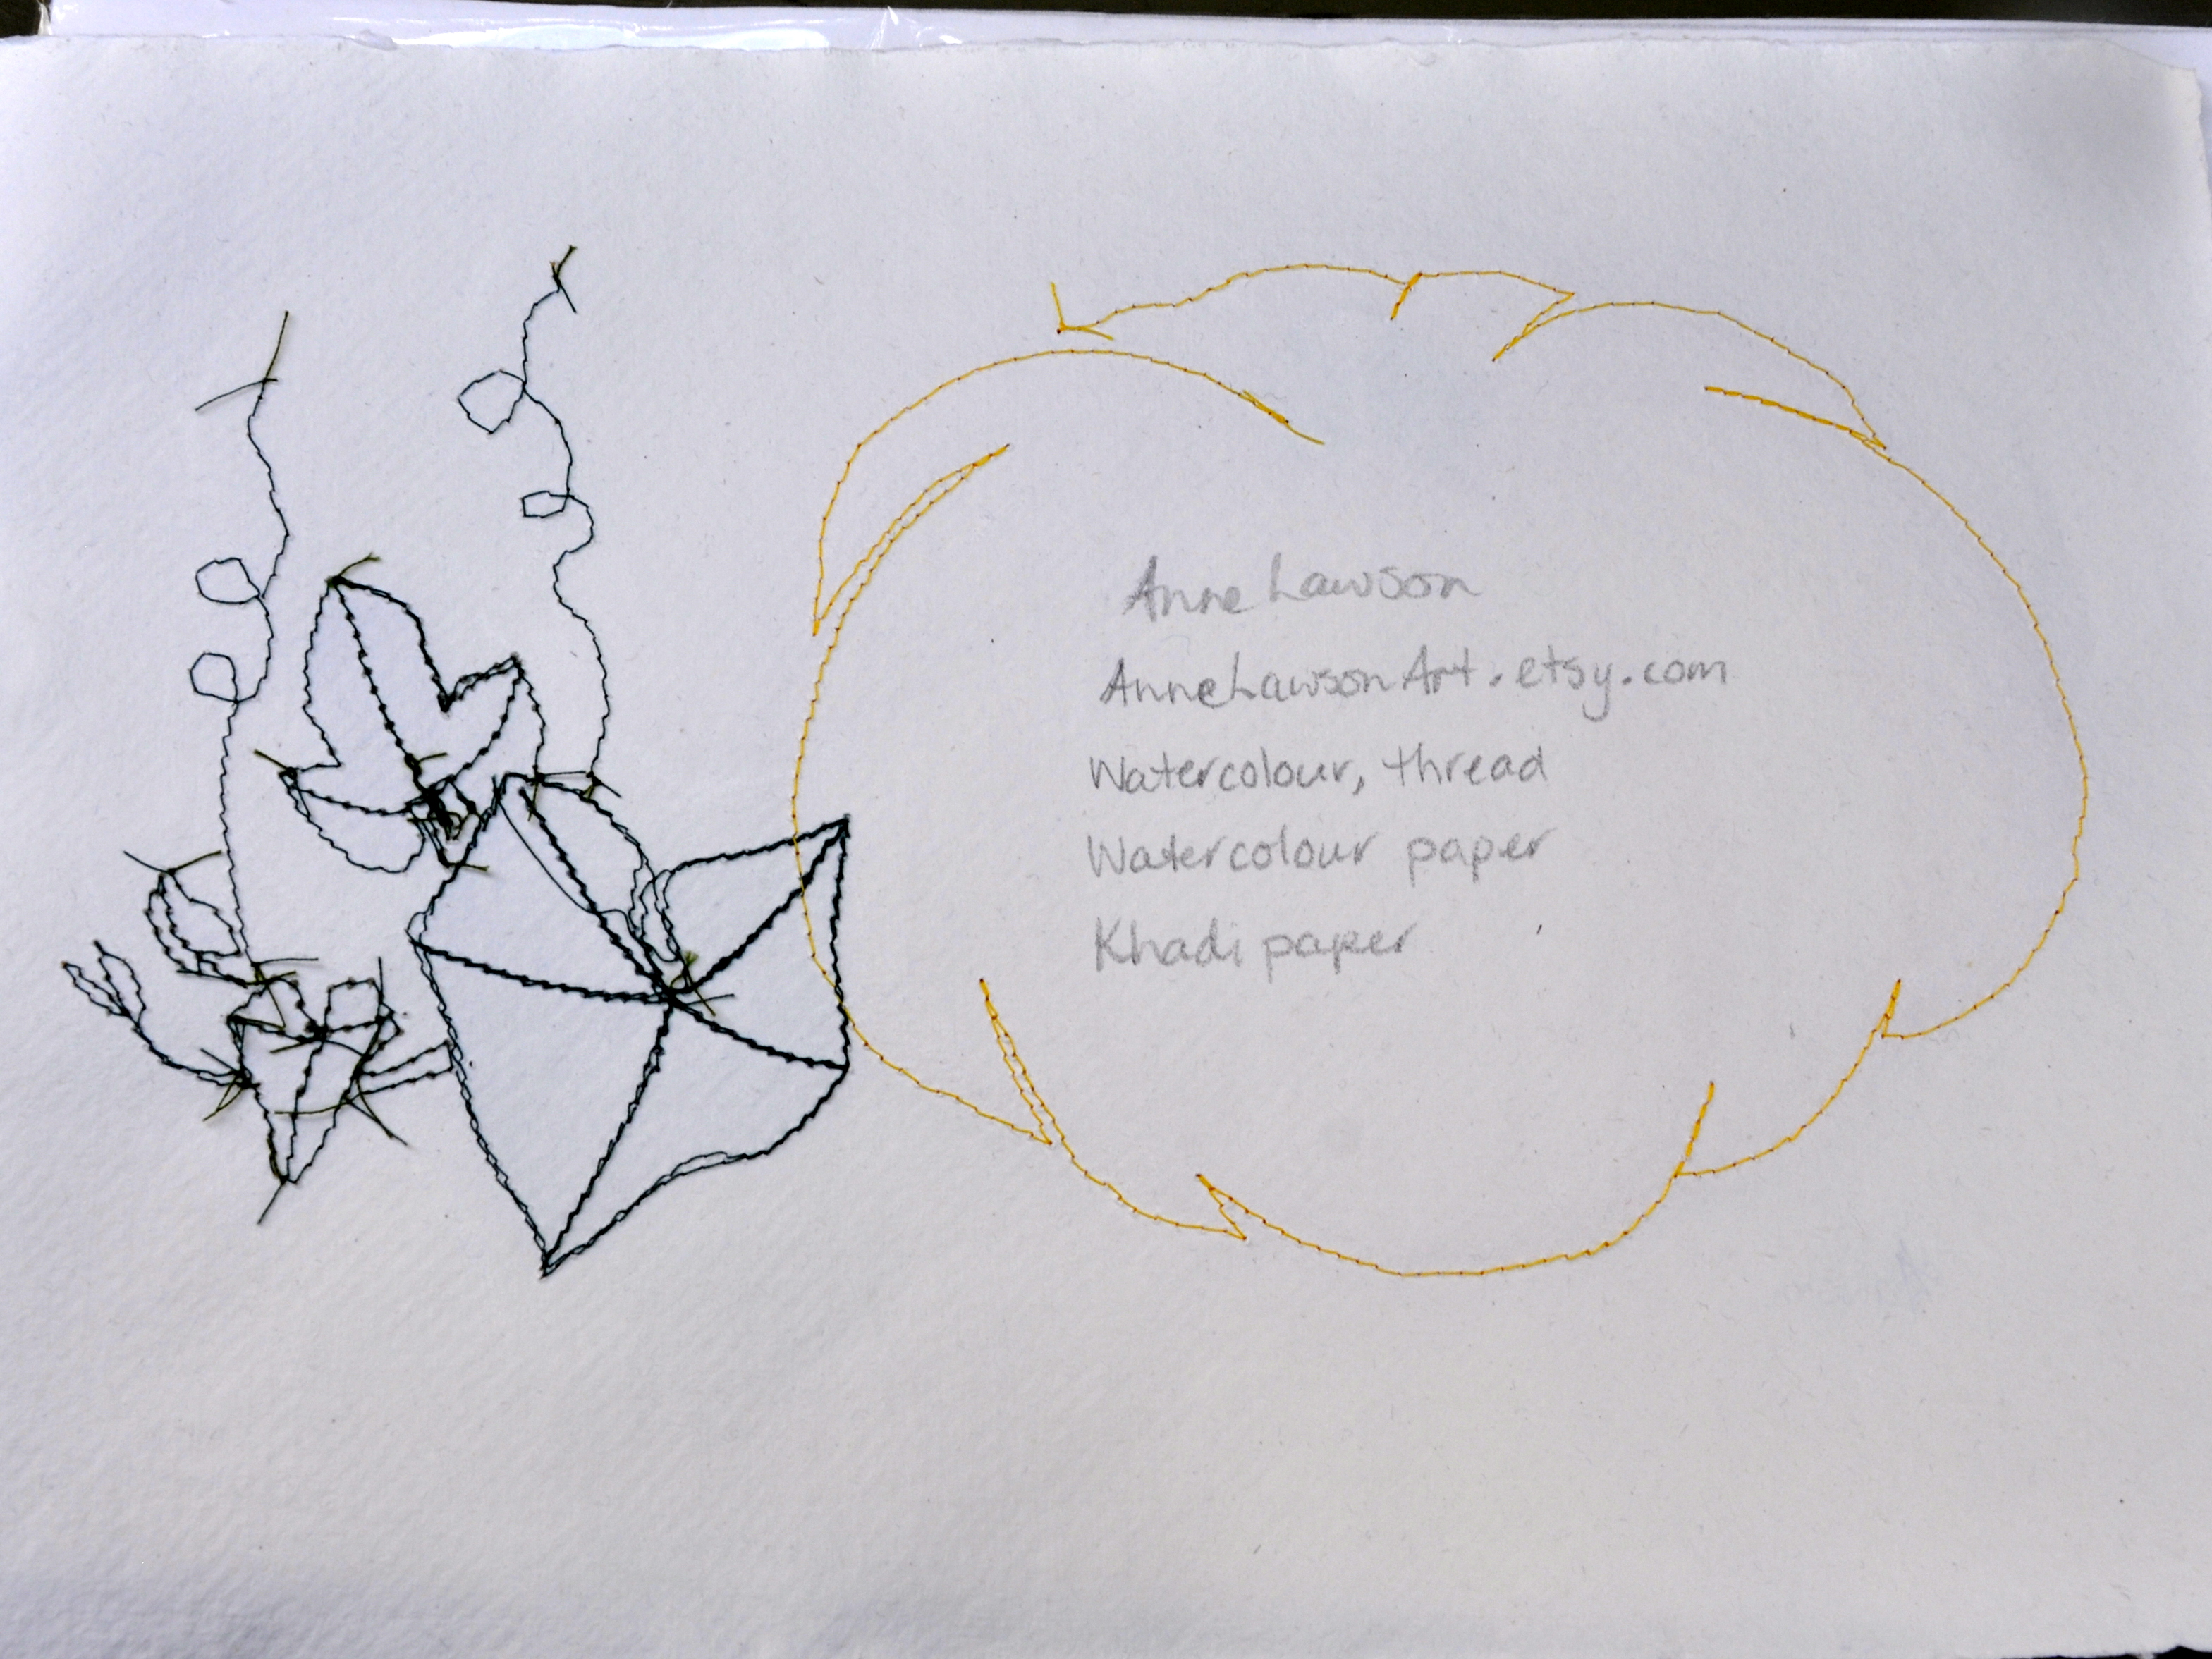 Anne Lawson
AnneLawsonArt.etsy.com
Watercolour, thread
Watercolour paper
Khadi paper